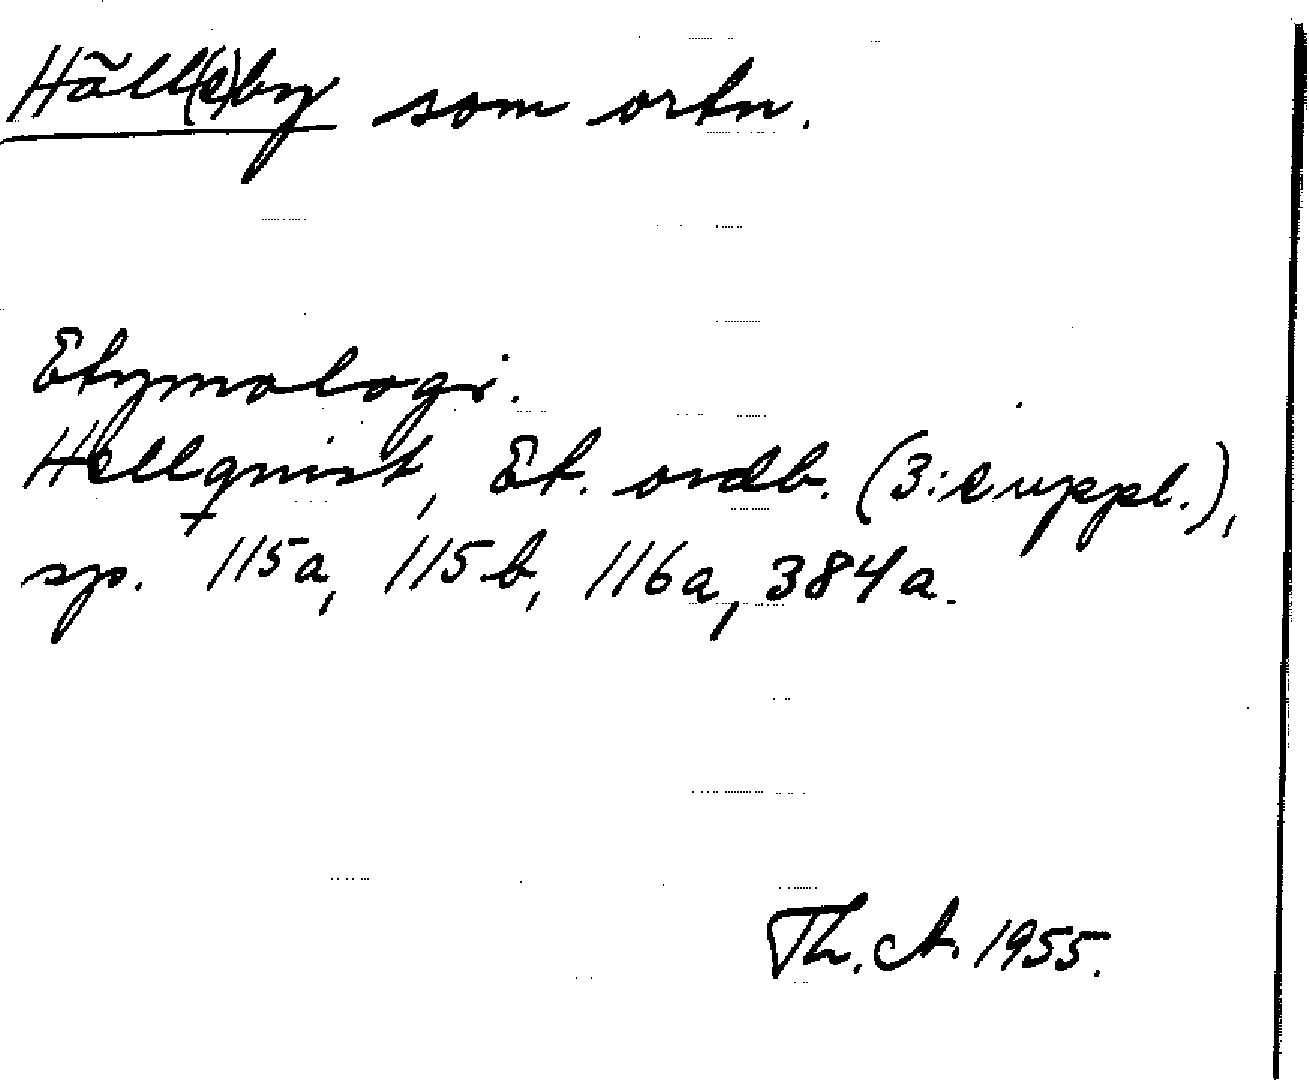 Häll(e)by som ortn.
Etymologi.
Hellqvist, Et. ordb. (3:e uppl.),
sp. 115a, 115b, 116a, 384a.
Th. A. 1955.